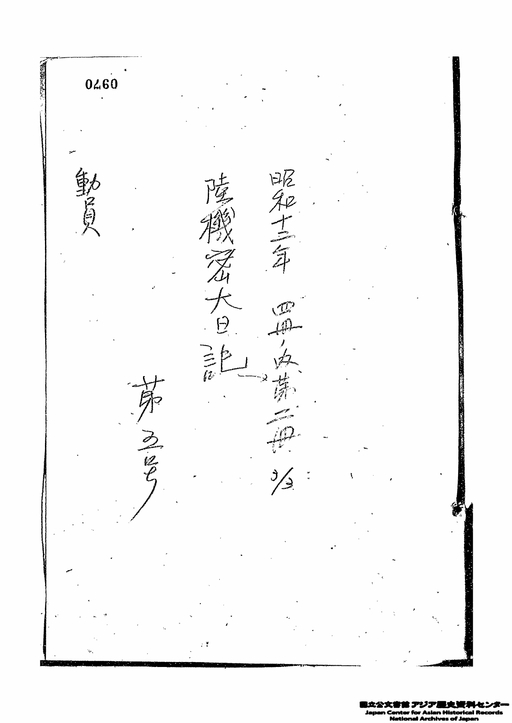 0760
昭和十二年 四冊ノ内第二冊 3/3
陸機密大日記
第五号
動員
國立公文書館 アジア歴史資料センター
Japan Center for Asian Historical Records
National Archives of Japan